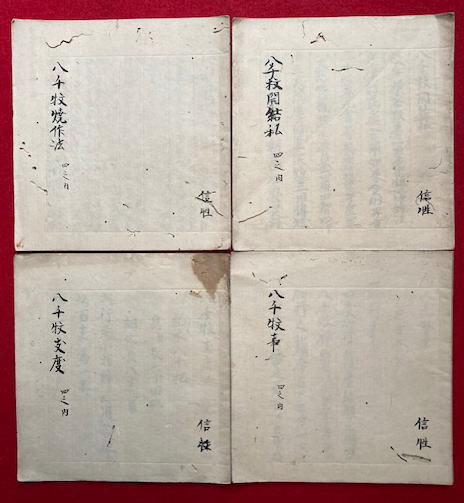 八千枚開結私
四之内
信性
八千枚燒作法
四之内
信性
八千枚事
四之内
信性
八千枚支度
四之内
信性